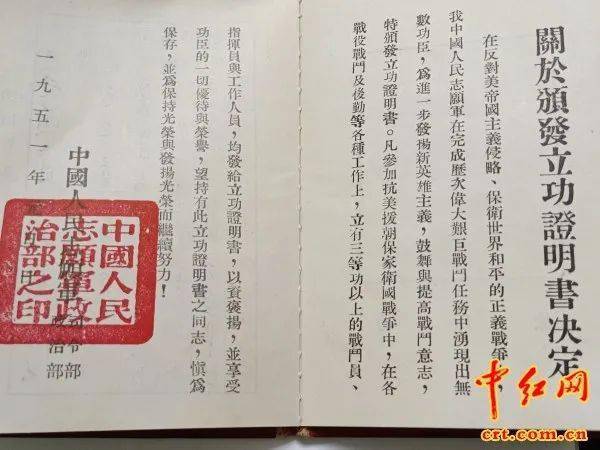 關於頒發立功證明書决定
在反對美帝國主義侵略、保衛世界和平的正義戰爭，
我中國人民志願軍在完成歷次偉大艱巨戰鬥任務中湧現出無
數功臣，爲進一步發揚新英雄主義，鼓舞與提高戰鬥意志，
特頒發立功證明書。凡參加抗美援朝保家衛國戰爭中，在各
戰役戰鬥及後勤等各種工作上，立有三等功以上的戰鬥員、
指揮員與工作人員，均發給立功證明書，以資褒揚，並享受
功臣的一切優待與榮譽，望持有此立功證明書之同志，慎爲
保存，並爲保持光榮與發揚光榮而繼續努力！
中國人民志願軍
司令部
政治部
一九五一年
中國人民
志願軍政
治部之印
中红网
crt.com.cn